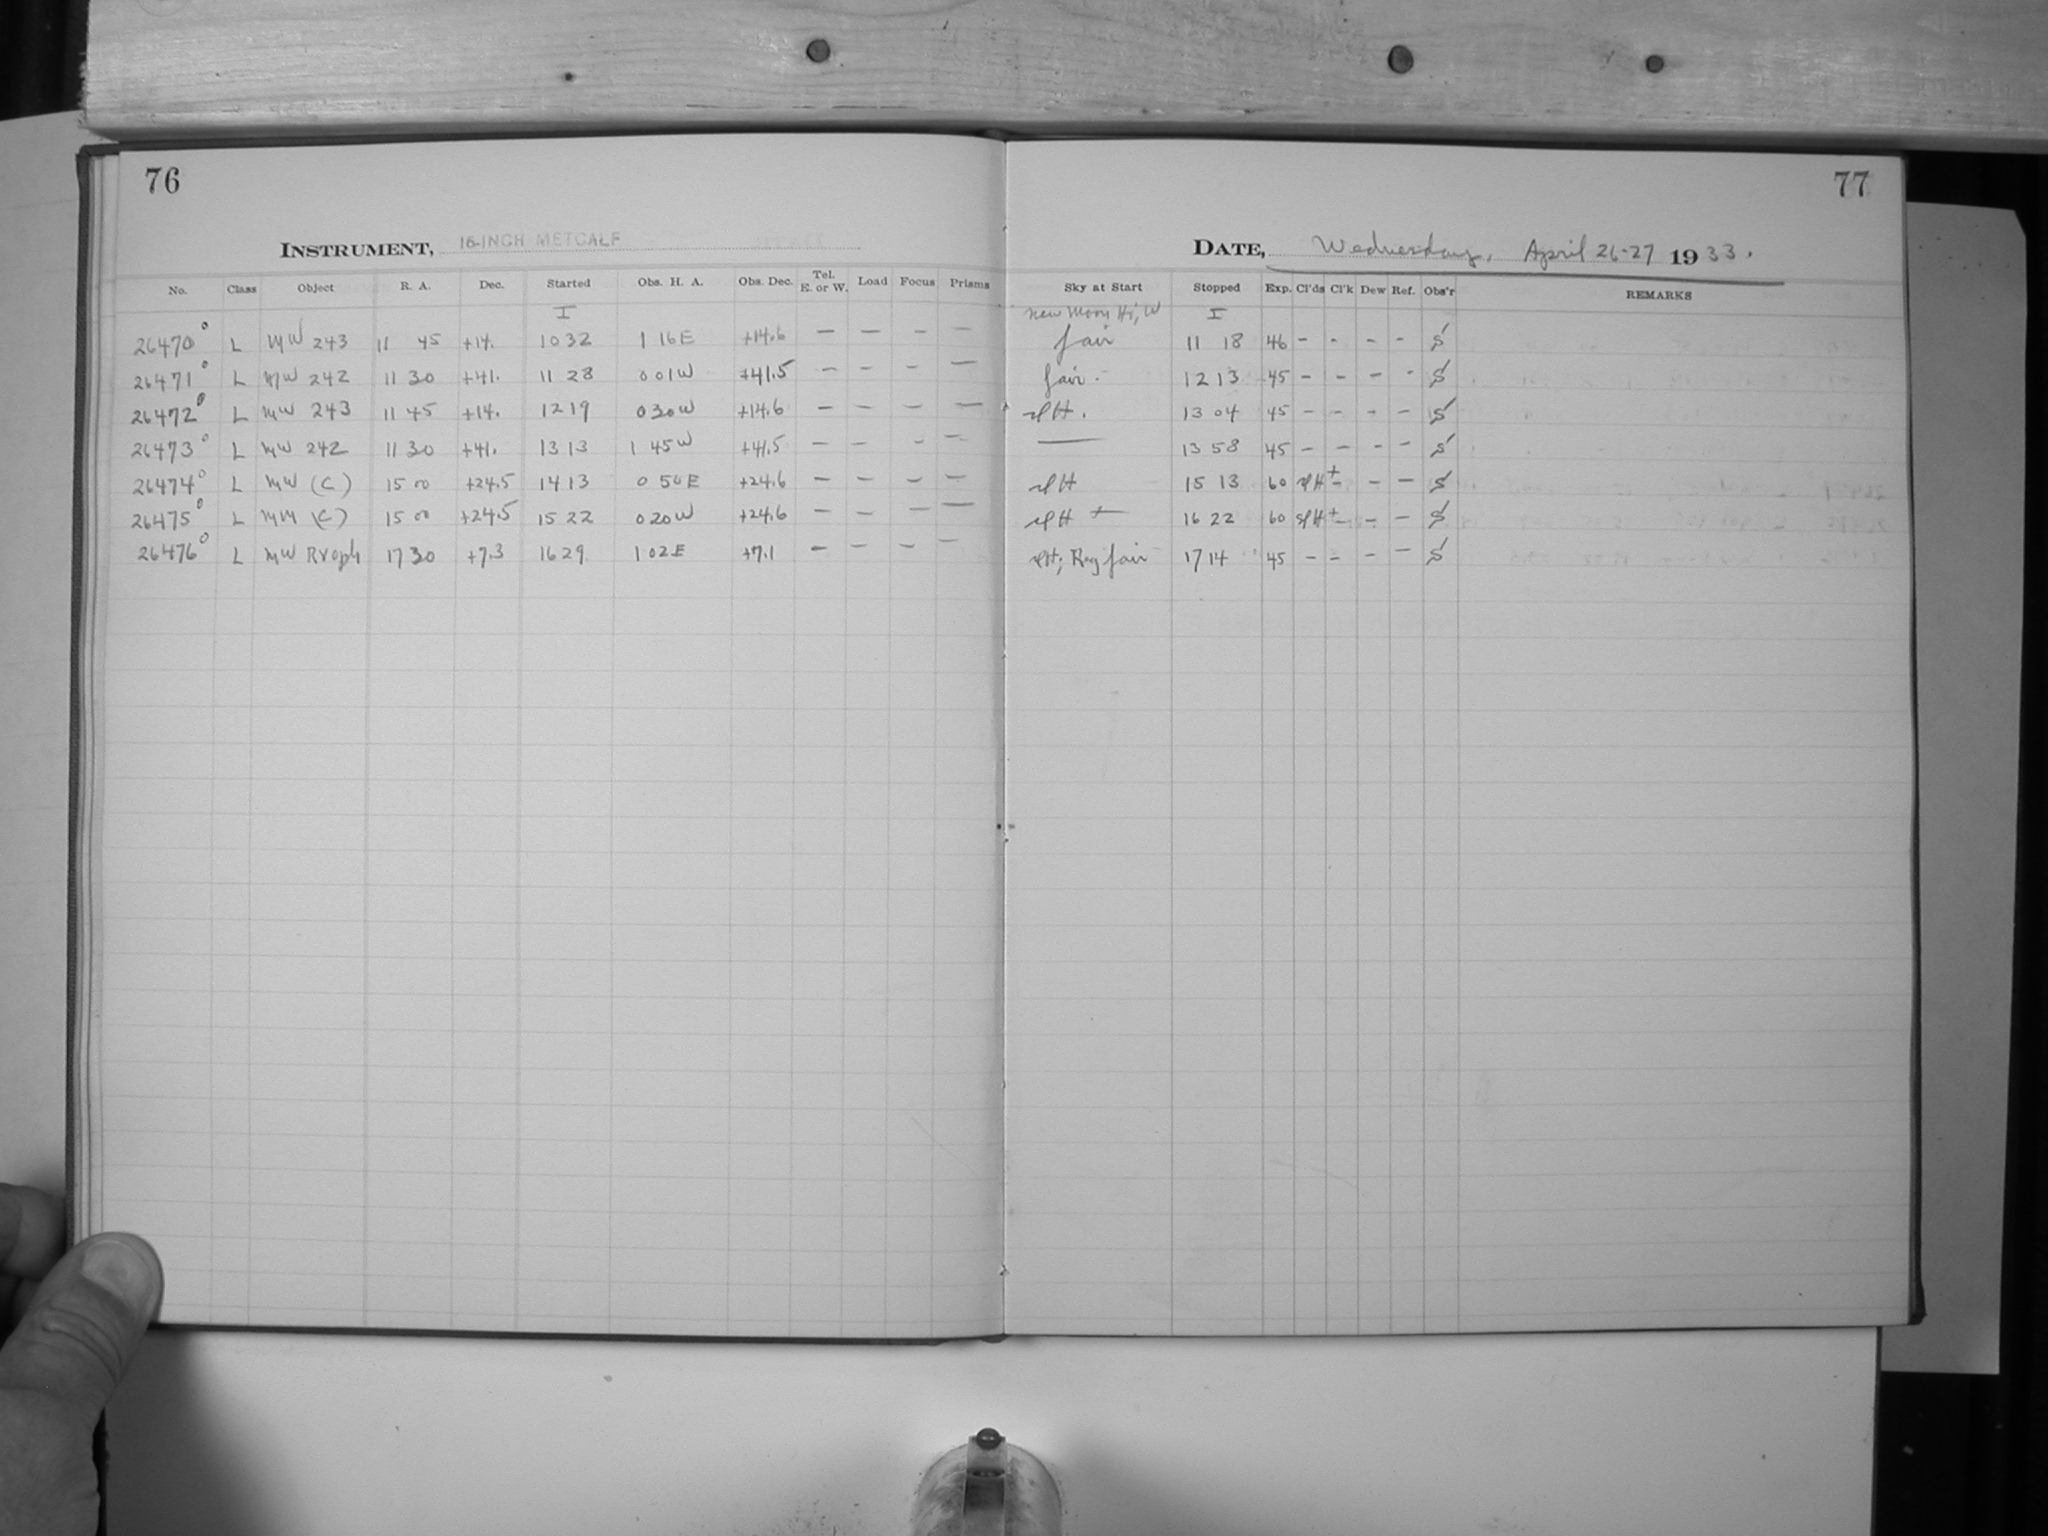 76
77
INSTRUMENT, 16-INCH METCALF
DATE, Wednesday, April 26-27 1933.
No. Class Object R. A. Dec. Started Obs. H. A. Obs. Dec. Tel. E. or W. Load Focus Prisms Sky at Start Stopped Exp. Cl'ds Cl'k Dew Ref. Obs'r REMARKS
I New Moon I
26470° L MW 243 11 45 +14. 10 32 1 16 E +14.6 — — — — fair 11 18 46 - - - - S
26471° L MW 242 11 30 +41. 11 28 0 01 W +41.5 — — — — fair. 12 13 45 - - - - S
26472° L MW 243 11 45 +14. 12 19 0 30 W +14.6 — — — — slH. 13 04 45 - - - - S
26473° L MW 242 11 30 +41. 13 13 1 45 W +41.5 — — — — — 13 58 45 - - - - S
26474° L MW (C) 15 00 +24.5 14 13 0 50 E +24.6 — — — — slH 15 13 60 slH± - - - S
26475° L MW (C) 15 00 +24.5 15 22 0 20 W +24.6 — — — — slH + 16 22 60 slH+ - - - S
26476° L MW RV Oph 17 30 +7.3 16 29 1 02 E +7.1 — — — — slH; Reg fair 17 14 45 - - - - S